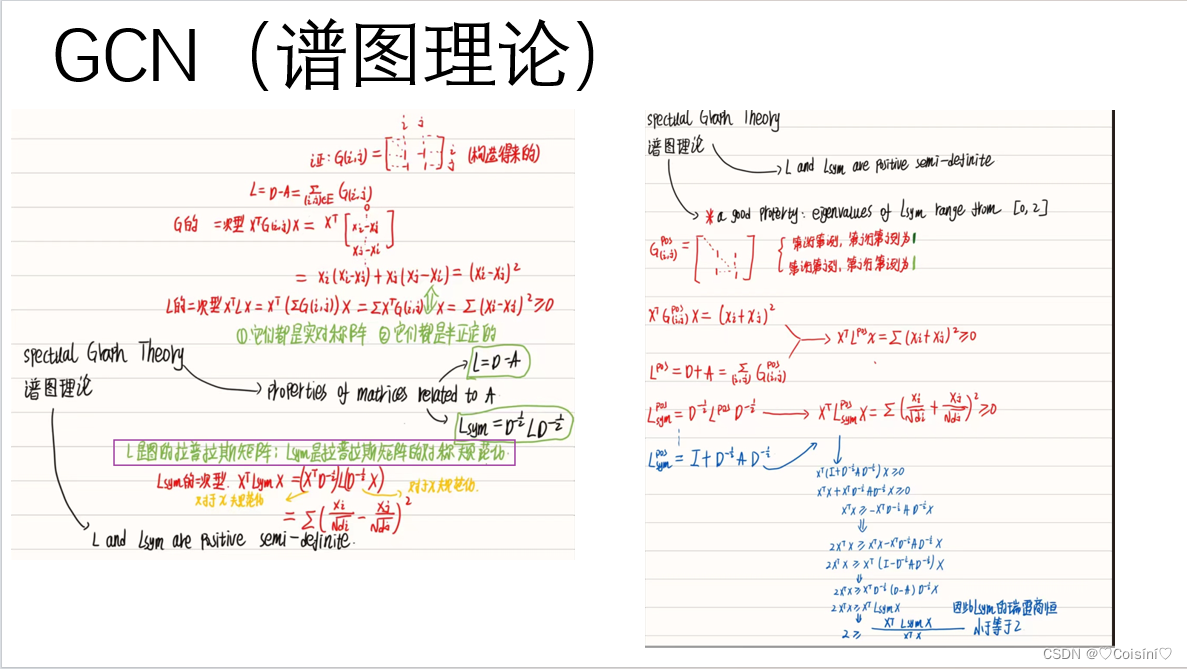 GCN（谱图理论）
i j
i证: G(i,j) = [ 1 -1 -1 1 ] i j (构造得来的)
L = D-A = Σ(i,j)∈E G(i,j)
G的 二次型 XᵀG(i,j)X = Xᵀ [ 0 xi-xj xj-xi ]
= xi(xi-xj)+xj(xj-xi) = (xi-xj)²
L的二次型 XᵀLX = Xᵀ(ΣG(i,j))X = ΣXᵀG(i,j)X = Σ(xi-xj)² ≥0
①它们都是实对称阵 ②它们都是半正定的
spectual Graph Theory
谱图理论
L=D-A
properties of matrices related to A
Lsym = D^-½ L D^-½
L是图的拉普拉斯矩阵; Lsym是拉普拉斯矩阵的对称规范化.
Lsym的二次型. XᵀLsym X = (XᵀD^-½)L(D^-½X)
对于X规范化
对于X规范化.
= Σ(xi/√di - xj/√dj)²
L and Lsym are positive semi-definite.
spectual Graph Theory
谱图理论
L and Lsym are positive semi-definite
* a good property: eigenvalues of Lsym range from [0, 2]
G(i,j)^pos = [ ]
第i行第i列, 第j行第j列为1
第i行第j列, 第j行第i列为1
XᵀG(i,j)^pos X = (xi+xj)²
XᵀL^pos X = Σ(xi+xj)² ≥0
L^pos = D+A = Σ(i,j) G(i,j)^pos
Lsym^pos = D^-½ L^pos D^-½
XᵀLsym^pos X = Σ(xi/√di + xj/√dj)² ≥0
Lsym^pos = I+D^-½ A D^-½
Xᵀ(I+D^-½AD^-½)X ≥0
XᵀX+XᵀD^-½AD^-½X ≥0
XᵀX ≥ -XᵀD^-½AD^-½X
2XᵀX ≥ XᵀX-XᵀD^-½AD^-½X
2XᵀX ≥ Xᵀ(I-D^-½AD^-½)X
2XᵀX ≥ XᵀD^-½(D-A)D^-½X
2XᵀX ≥ XᵀLsymX
2 ≥ XᵀLsymX / XᵀX
因此Lsym的瑞雷商恒
小于等于2
CSDN @♡Coisíní♡